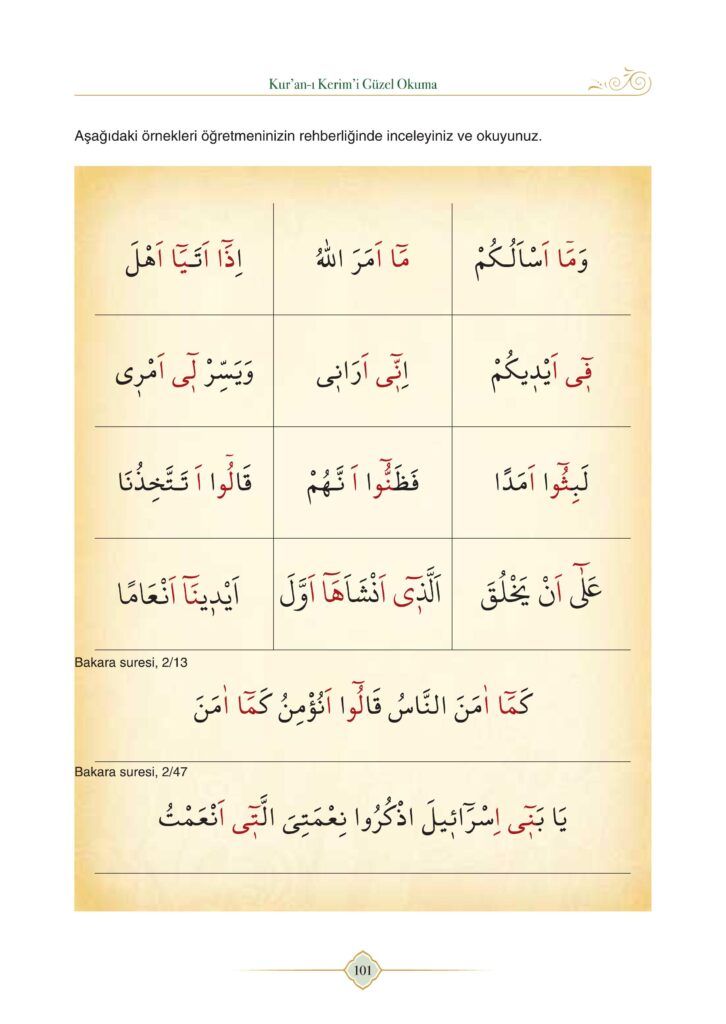 Kur'an-ı Kerim'i Güzel Okuma
Aşağıdaki örnekleri öğretmeninizin rehberliğinde inceleyiniz ve okuyunuz.
وَمَٓا اَسْاَلُكُمْ
مَٓا اَمَرَ اللّٰهُ
اِذَٓا اَتَيَٓا اَهْلَ
فٖٓى اَيْدٖيكُمْ
اِنّٖٓى اَرَانٖى
وَيَسِّرْ لٖٓى اَمْرٖى
لَبِثُٓوا اَمَدًا
فَظَنُّٓوا اَنَّهُمْ
قَالُٓوا اَتَتَّخِذُنَا
عَلٰٓى اَنْ يَخْلُقَ
اَلَّذٖٓى اَنْشَاَهَٓا اَوَّلَ
اَيْدٖينَٓا اَنْعَامًا
Bakara suresi, 2/13
كَمَٓا اٰمَنَ النَّاسُ قَالُٓوا اَنُؤْمِنُ كَمَٓا اٰمَنَ
Bakara suresi, 2/47
يَا بَنٖٓى اِسْرَٓائٖيلَ اذْكُرُوا نِعْمَتِىَ الَّتٖٓى اَنْعَمْتُ
101